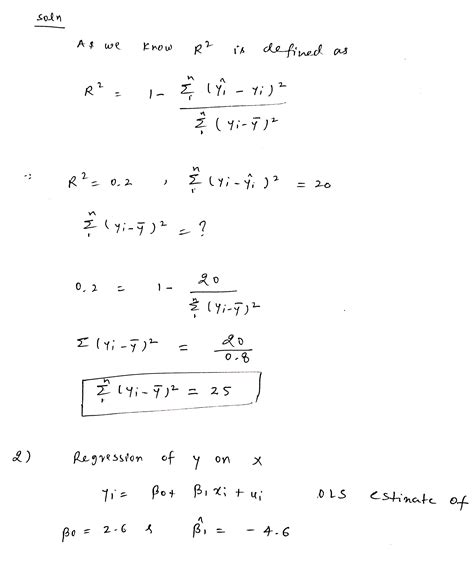 soln
As we know R² is defined as
R² = 1- Σ₁ⁿ (ŷi - yi)² / Σ₁ⁿ (yi-ȳ)²
∵ R² = 0.2 , Σ₁ⁿ (yi-ŷi)² = 20
Σ₁ⁿ (yi-ȳ)² = ?
0.2 = 1- 20 / Σ₁ⁿ (yi-ȳ)²
Σ (yi-ȳ)² = 20 / 0.8
Σ₁ⁿ (yi-ȳ)² = 25
2) Regression of y on x
yi = β0+ β1xi + ui OLS estinate of
β0 = 2.6 & β̂1 = - 4.6